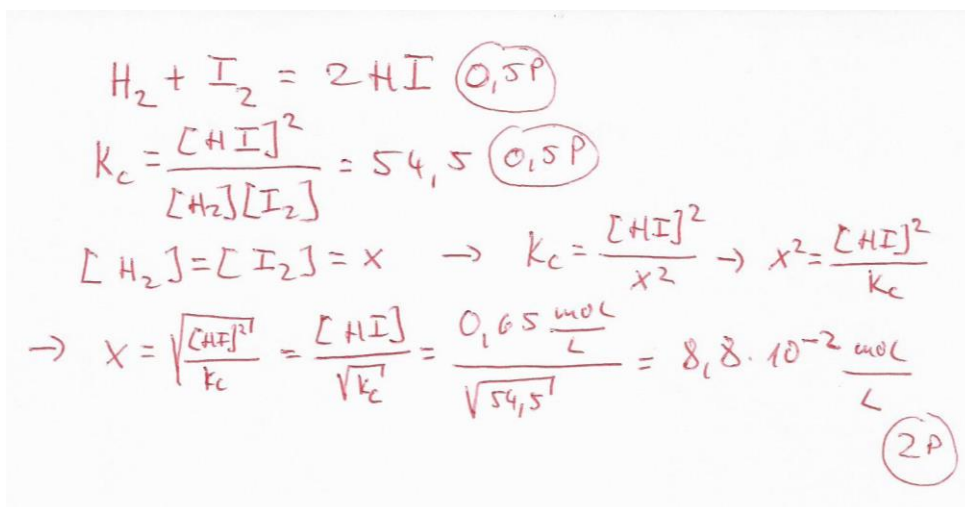 H₂ + I₂ = 2HI (0,5P)
K_c = [HI]² / [H₂][I₂] = 54,5 (0,5P)
[H₂] = [I₂] = x → K_c = [HI]² / x² → x² = [HI]² / K_c
→ x = √([HI]² / K_c) = [HI] / √K_c = 0,65 mol/L / √54,5 = 8,8 · 10⁻² mol/L
(2P)